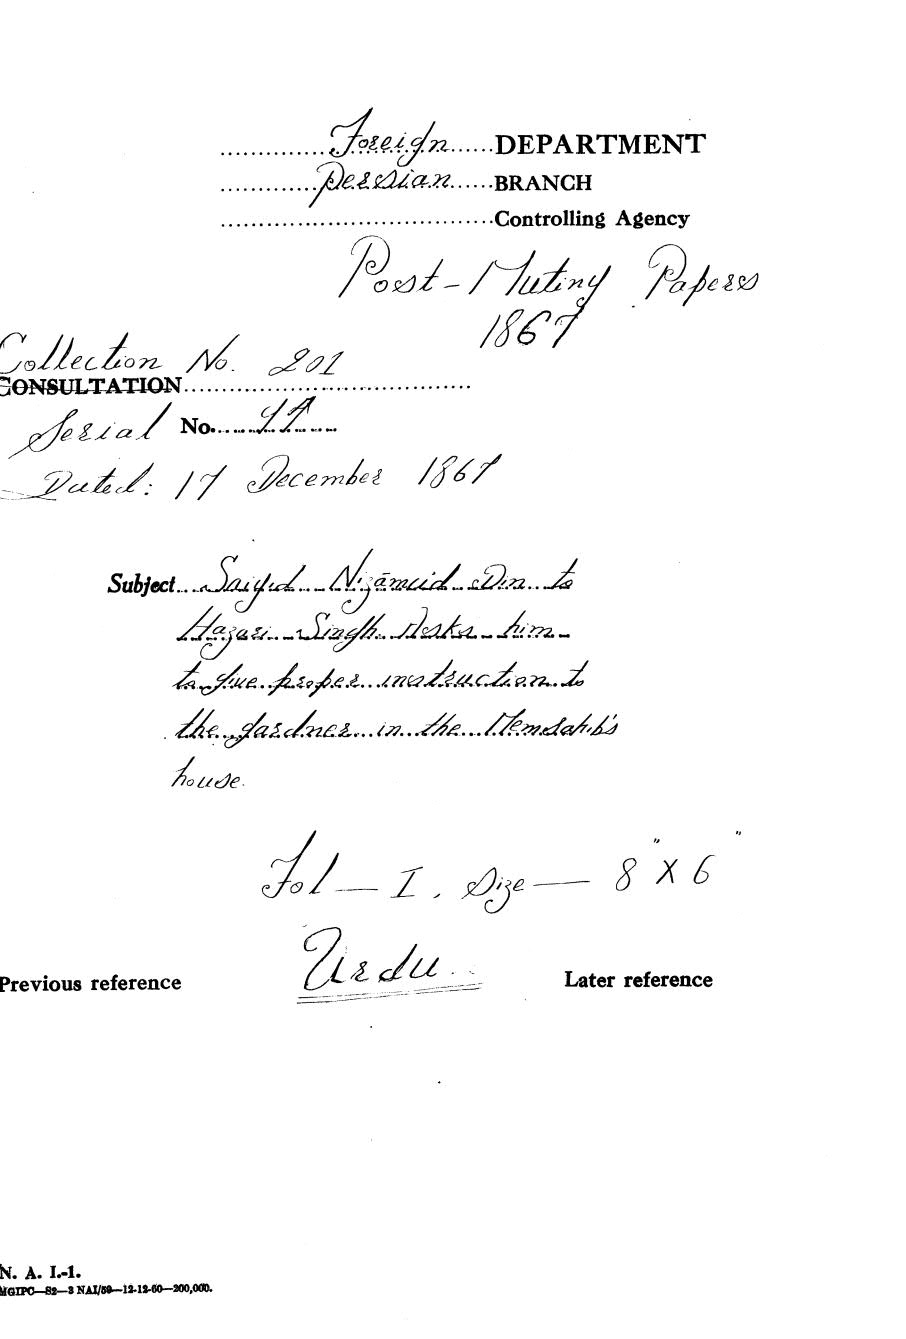 Foreign DEPARTMENT
Persian BRANCH
Controlling Agency
Post-Mutiny Papers
1867
Collection No. 201
CONSULTATION
Serial No.
Dated: 17 December 1867
Subject Saiyid Nizāmuid Din to
Hazari Singh. Asks him
to give proper instruction to
the gardner in the Memsahib's
house.
Fol — I. Size — 8" X 6"
Urdu
Previous reference
Later reference
N. A. I.-1.
MGIPC—S2—3 NAI/59—12-12-60—200,000.